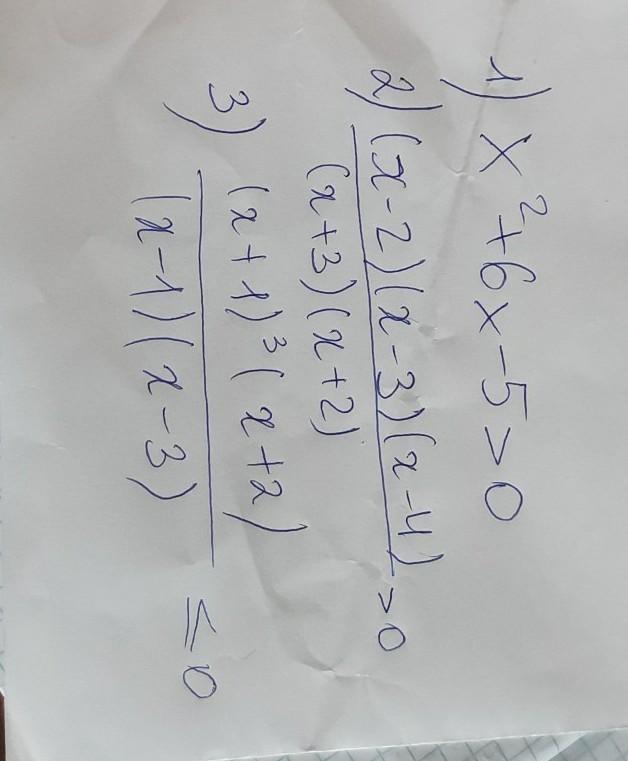 1) x²+6x-5>0
2) (x-2)(x-3)(x-4)
(x+3)(x+2) >0
3) (x+1)³(x+2)
(x-1)(x-3) ≤0